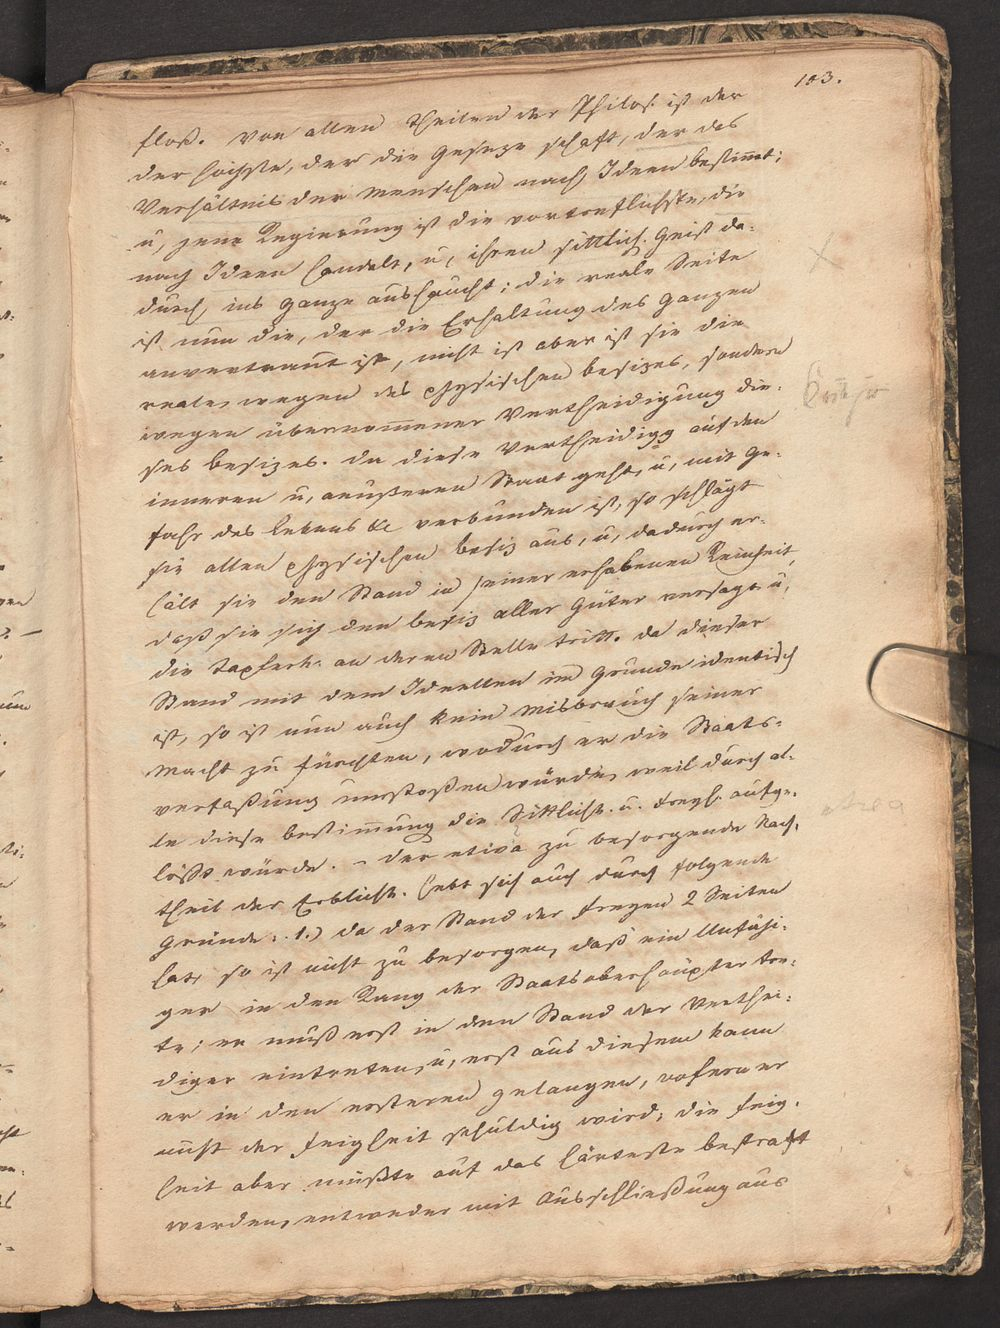 103.
floß. Von allen Theilen der Philos. ist der
der höchste, der die Geseze schaft, der das
Verhältnis der Menschen nach Ideen bestimmt;
u, jene Regierung ist die vortreflichste, die
nach Ideen handelt, u, ihren sittlich. Geist da-
durch ins Ganze aushaucht; die reale Seite
ist nun die, der die Erhaltung des Ganzen
anvertraut ist, nicht ist aber ist sie die
reale, wegen des physischen Besizes, sondern
wegen übernommener Vertheidigung die-
ses Besizes. Da diese Vertheidigg auf den
inneren u, aeußeren Staat geht, u, mit Ge-
fahr des Lebens &c verbunden ist, so schlägt
sie allen physischen Besiz aus, u, dadurch er-
hält sie den Stand in seiner erhabenen Reinheit,
daß sie sich den Besiz aller Güter versagt u,
die Tapferk. an deren Stelle tritt. Da dieser
Stand mit dem Ideellen im Grunde identisch
ist, so ist nun auch kein Misbrauch seiner
Macht zu fürchten, wodurch er die Staats-
verfaßung umstoßen würde, weil durch al-
le diese Bestimmung die Sittlichk. u. Freyh. aufge-
löst würde. – Der etwa zu besorgende Nach-
theil der Erblichk. hebt sich auch durch folgende
Gründe: 1.) Da der Stand der Freyen 2 Seiten
hat, so ist nicht zu besorgen, daß ein Unfähi-
ger in den Rang der Staatsoberhäupter tre-
te; er muß erst in den Stand der Verthei-
diger eintreten, u, erst aus diesem kann
er in den ersteren gelangen, wofern er
nicht der Feigheit schuldig wird; die Feig-
heit aber müßte auf das härteste bestraft
werden, entweder mit Ausschließung aus